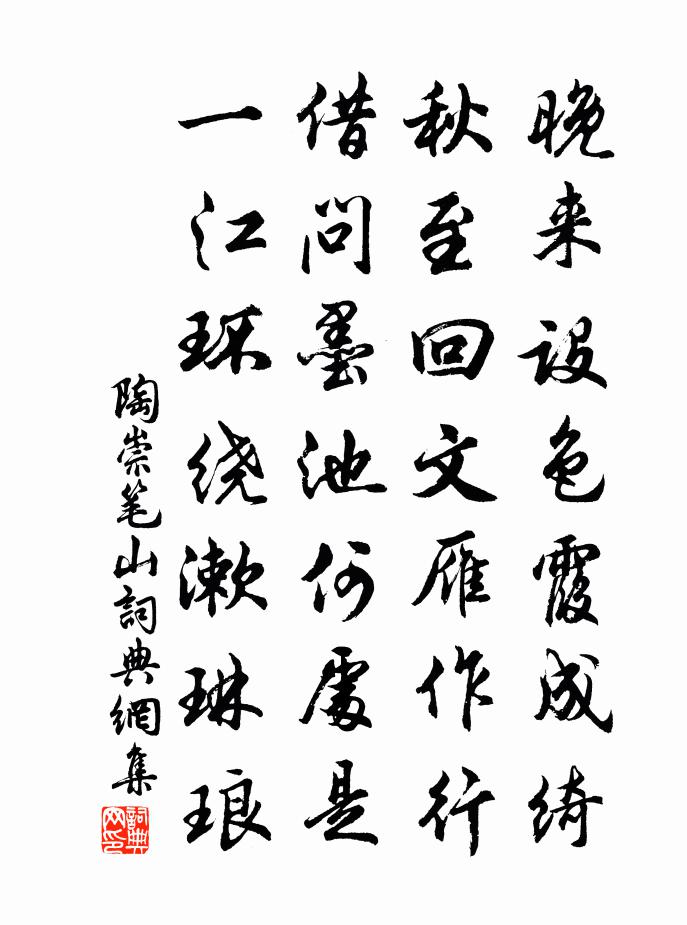 晚来设色霞成绮
秋至回文雁作行
借问墨池何處是
一江环绕漱琳琅
陶崇笔山詞典網集
詞典网印